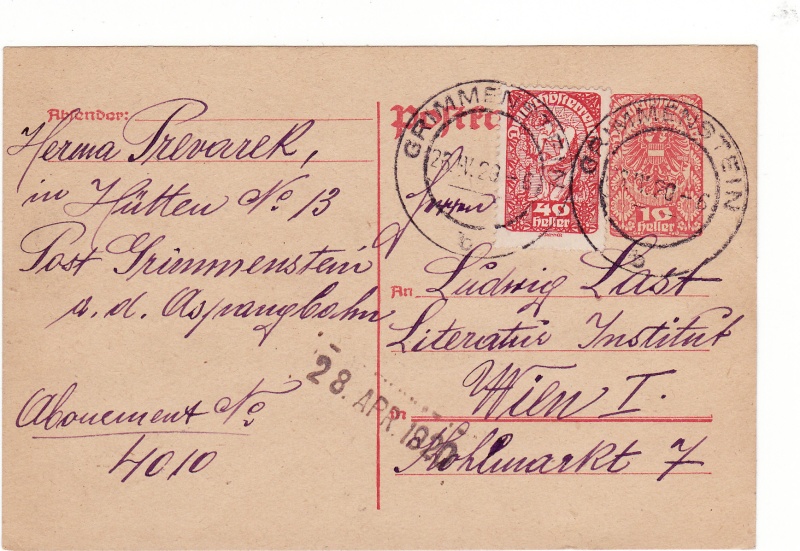 Absender:
Herma Prevarek,
in Hütten No 13
Post Grimmenstein
a. d. Aspangbahn
Abonement No
4010
Postk
GRIMMENSTEIN
b
40
Heller
GRIMMENSTEIN
b
10
Heller
An Ludwig Last
Literatur Institut
Wien I.
In
Kohlmarkt 7
28. APR. 1920